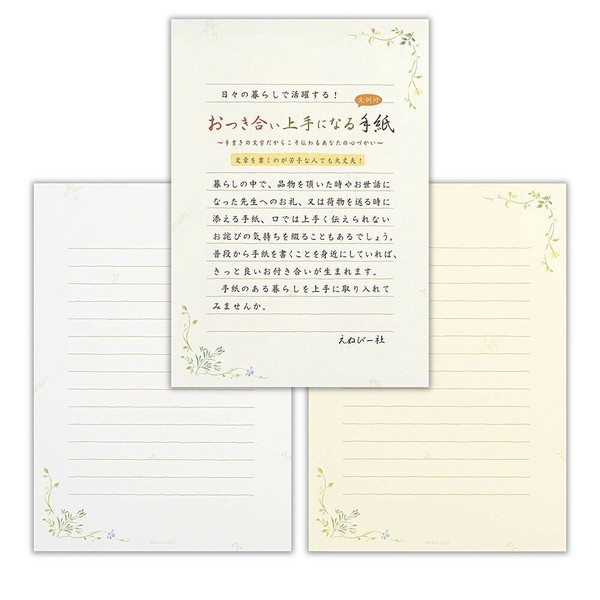 日々の暮らしで活躍する！
文例付
おつき合い上手になる手紙
～手書きの文字だからこそ伝わるあなたの心づかい～
文章を書くのが苦手な人でも大丈夫！
暮らしの中で、品物を頂いた時やお世話に
なった先生へのお礼、又は荷物を送る時に
添える手紙、口では上手く伝えられない
お詫びの気持ちを綴ることもあるでしょう。
普段から手紙を書くことを身近にしていれば、
きっと良いお付き合いが生まれます。
手紙のある暮らしを上手に取り入れて
みませんか。
えぬびー社